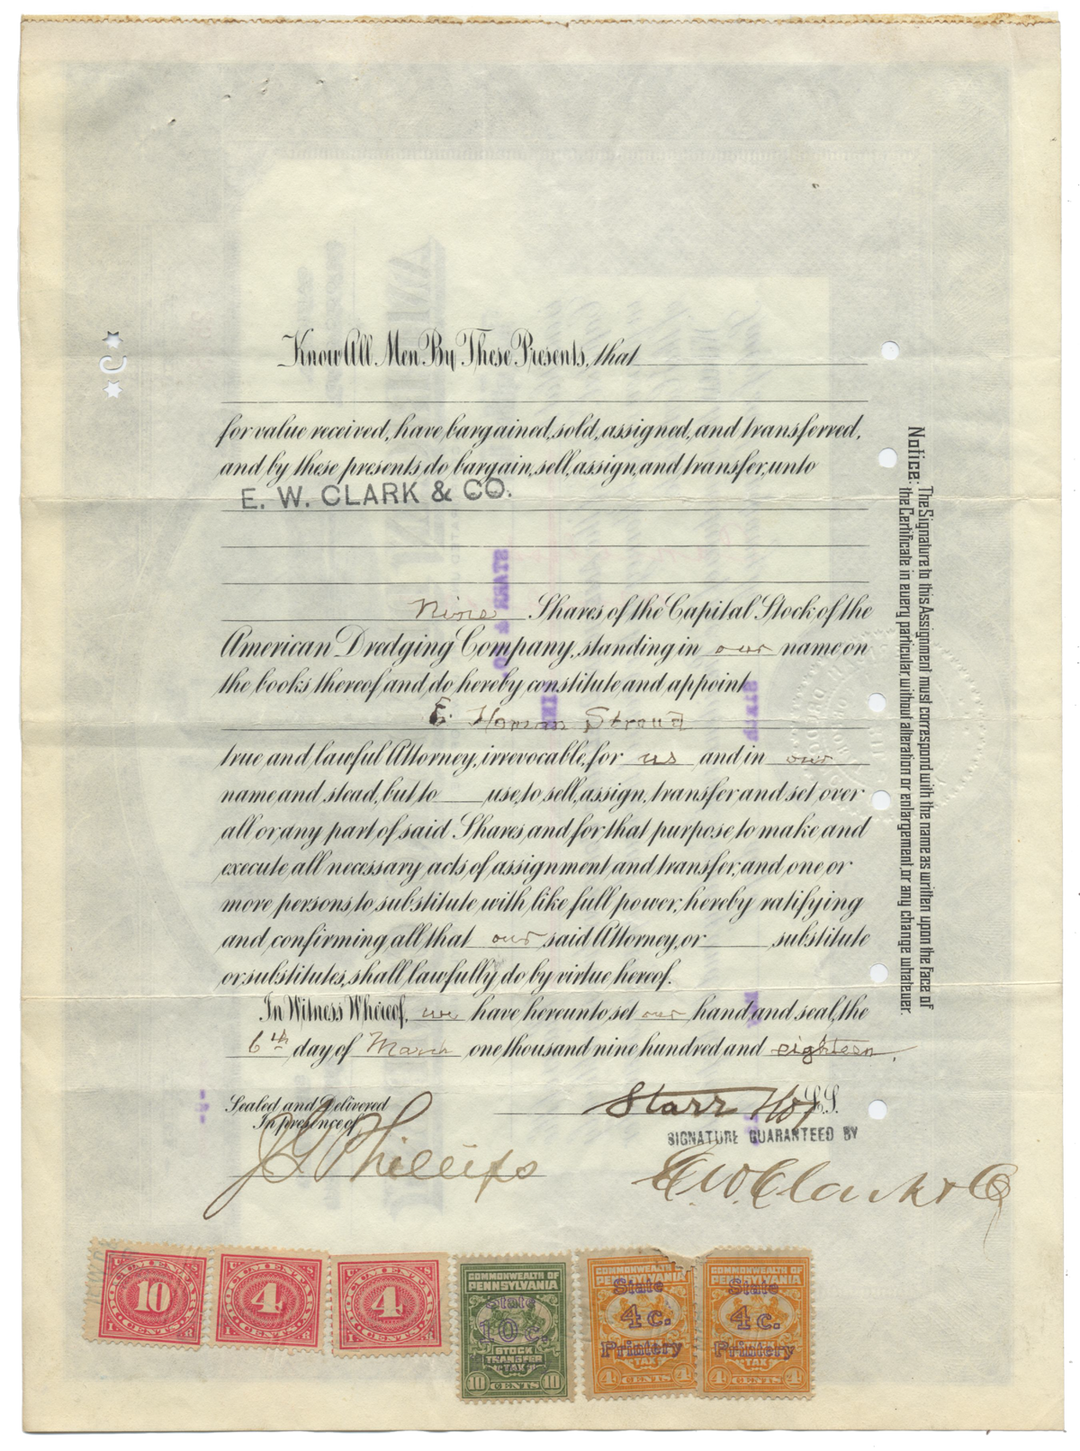 Know All Men By These Presents, that
for value received, have bargained, sold, assigned, and transferred,
and by these presents do bargain, sell, assign, and transfer, unto
E. W. CLARK & CO.
Nine Shares of the Capital Stock of the
American Dredging Company, standing in our name on
the books thereof and do hereby constitute and appoint
E. Stroud
true and lawful Attorney, irrevocable, for us and in our
name and stead, but to use, to sell, assign, transfer and set over
all or any part of said Shares, and for that purpose, to make and
execute all necessary acts of assignment and transfer, and one or
more persons to substitute with like full power, hereby ratifying
and confirming all that our said Attorney, or substitute
or substitutes, shall lawfully do by virtue hereof.
In Witness Whereof, we have hereunto set our hand and seal, the
6th day of March one thousand nine hundred and eighteen.
Sealed and Delivered
In presence of
Starr & Co L.S.
SIGNATURE GUARANTEED BY
J G Phillips
E. W. Clark & Co
Notice: The Signature to this Assignment must correspond with the name as written upon the face of
the Certificate in every particular, without alteration or enlargement, or any change whatever.
DOCUMENTARY
10
CENTS
DOCUMENTARY
4
CENTS
DOCUMENTARY
4
CENTS
COMMONWEALTH OF
PENNSYLVANIA
State
10 c.
STOCK
TRANSFER
TAX
10 CENTS 10
COMMONWEALTH OF
PENNSYLVANIA
State
4 c.
Printery
TAX
4 CENTS 4
COMMONWEALTH OF
PENNSYLVANIA
State
4 c.
Printery
TAX
4 CENTS 4